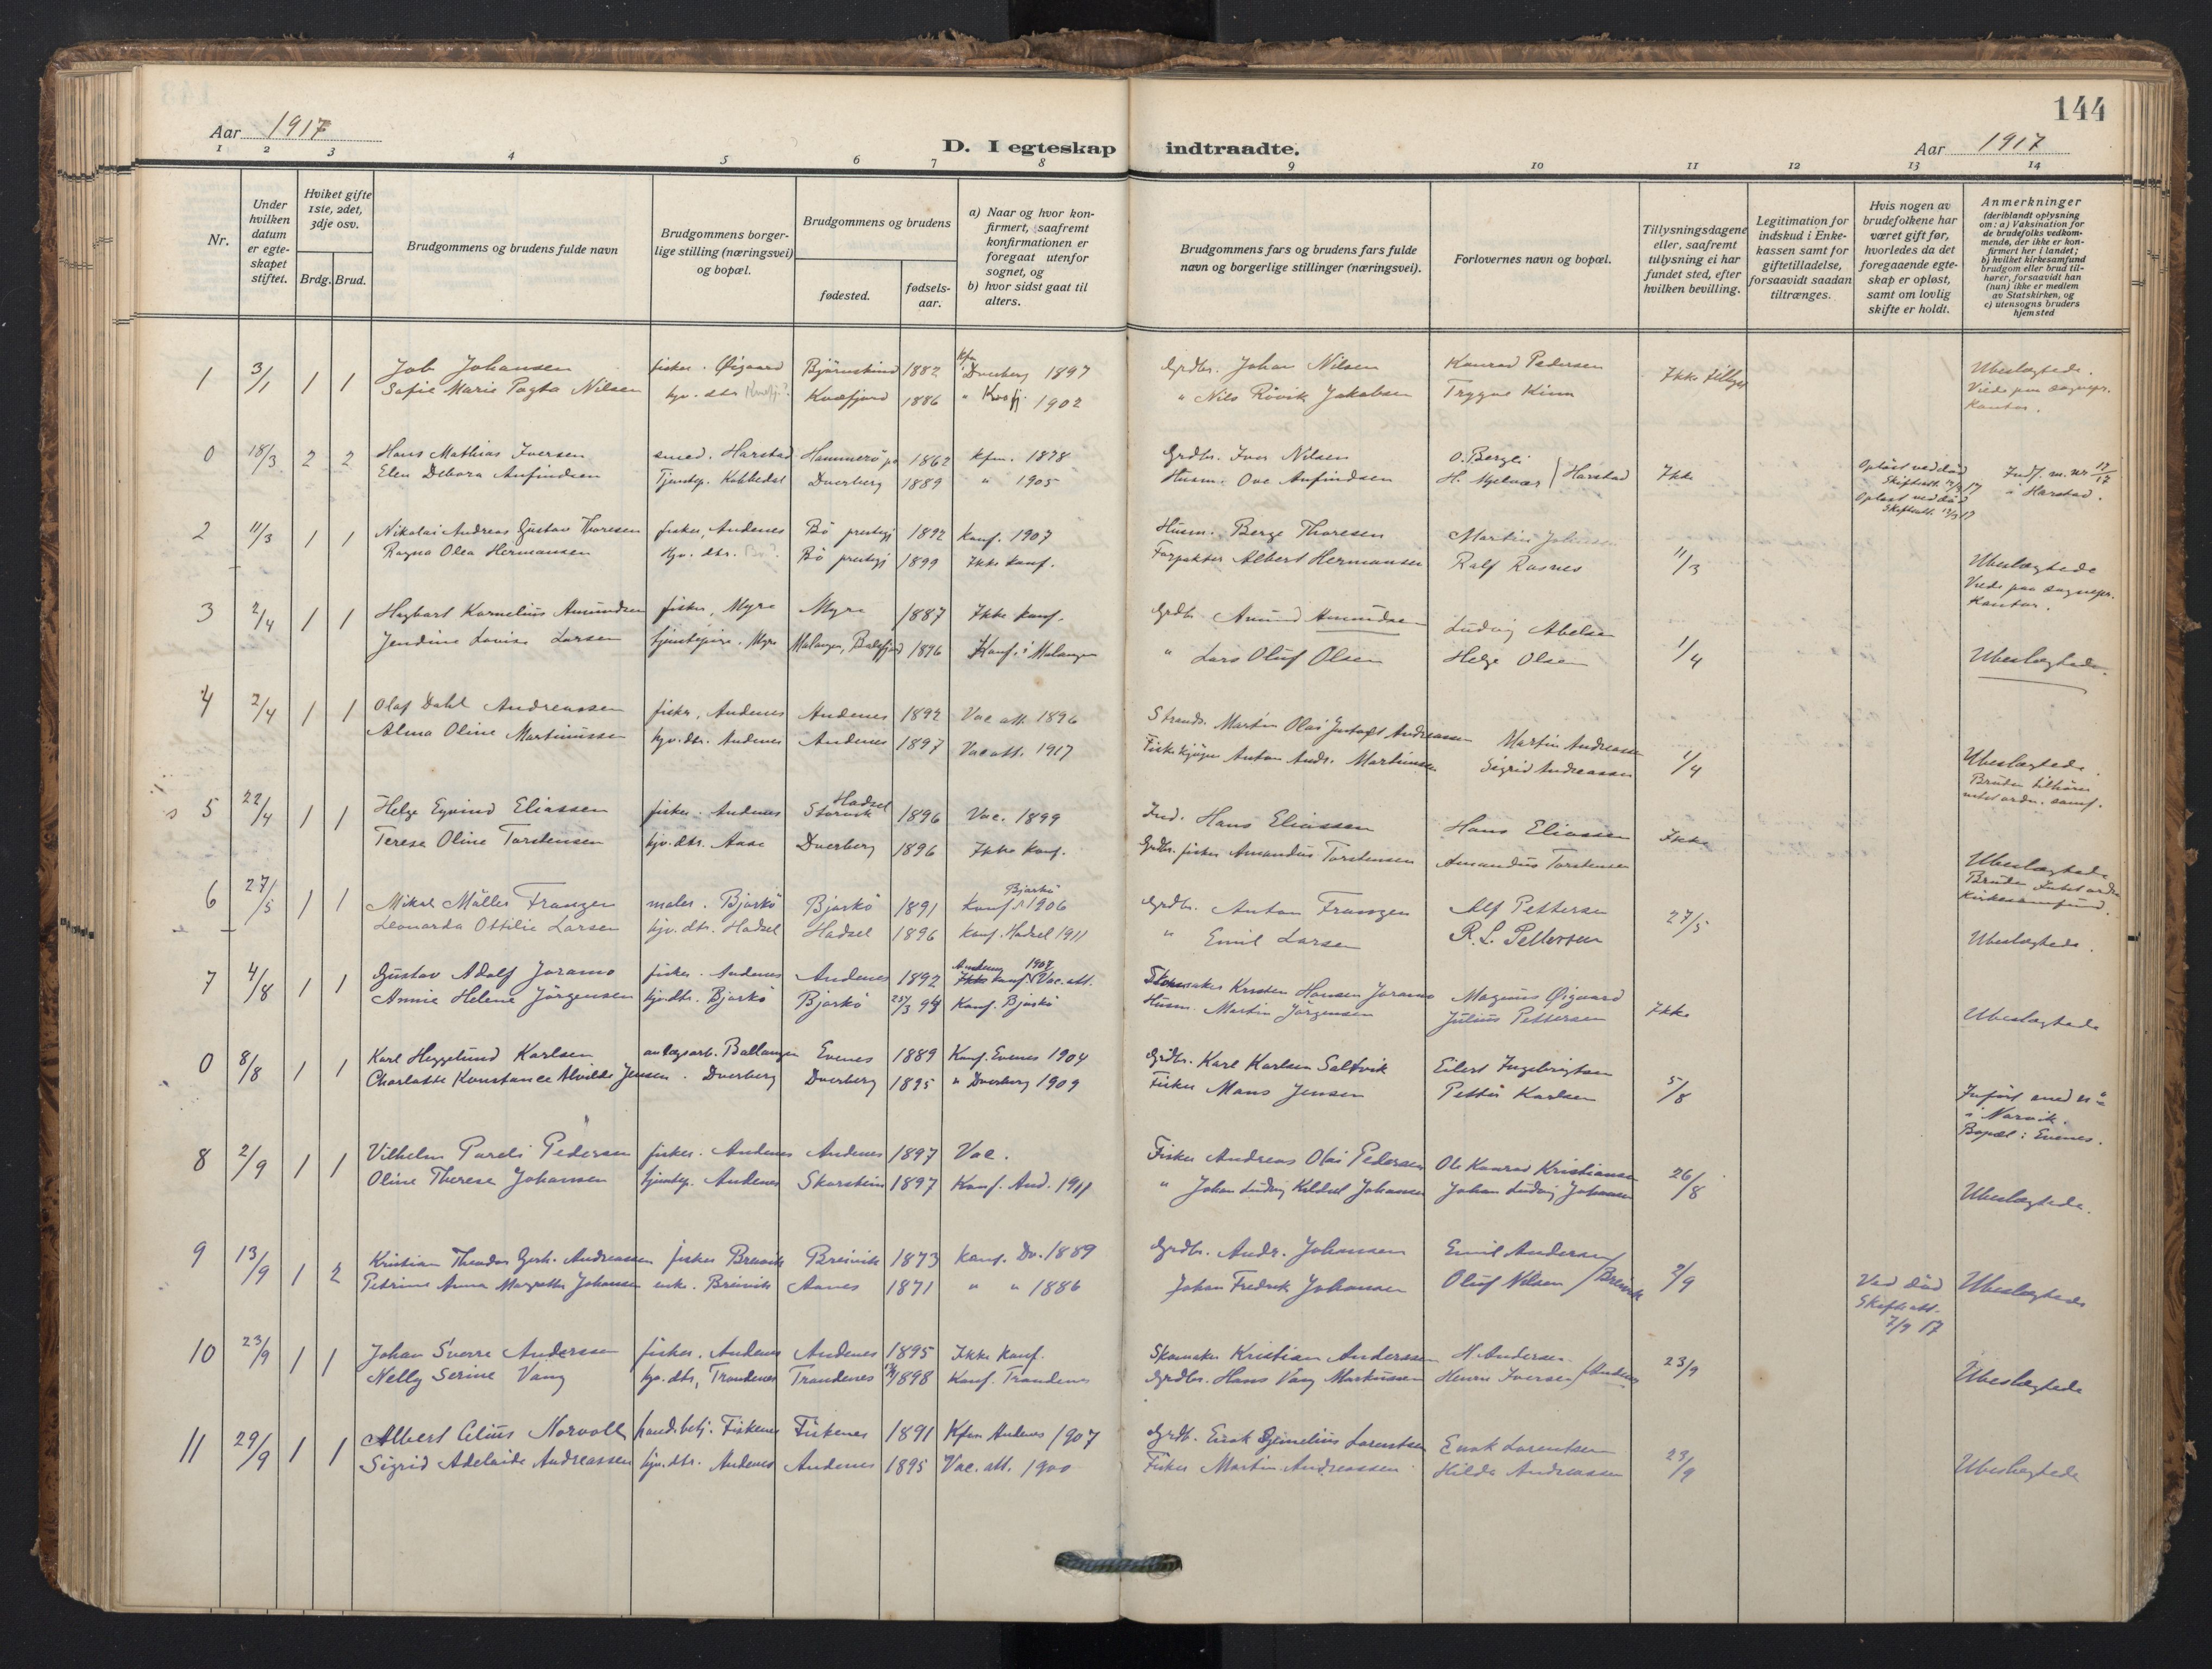 144
Aar 1917
D. I egteskap indtraadte.
Aar 1917
1 2 3 4 5 6 7 8 9 10 11 12 13 14
Nr.
Under hvilken datum er egteskapet stiftet.
Hviket gifte 1ste, 2det, 3dje osv.
Brdg. Brud.
Brudgommens og brudens fulde navn
Brudgommens borgerlige stilling (næringsvei) og bopæl.
Brudgommens og brudens
fødested.
fødselsaar.
a) Naar og hvor konfirmert, saafremt konfirmationen er foregaat utenfor sognet, og
b) hvor sidst gaat til alters.
Brudgommens fars og brudens fars fulde navn og borgerlige stillinger (næringsvei).
Forlovernes navn og bopæl.
Tillysningsdagene eller, saafremt tillysning ei har fundet sted, efter hvilken bevilling.
Legitimation for indskud i Enkekassen samt for giftetilladelse, forsaavidt saadan tiltrænges.
Hvis nogen av brudefolkene har været gift før, hvorledes da det foregaaende egteskap er opløst, samt om lovlig skifte er holdt.
Anmerkninger
(deriblandt oplysning om: a) Vaksination for de brudefolks vedkommende, der ikke er konfirmert her i landet; b) hvilket kirkesamfund brudgom eller brud tilhører, forsaavidt han (hun) ikke er medlem av Statskirken, og c) utensogns bruders hjemsted
1 3/1 1 1 Job Johansen fisker. Øigaard Bjørnskind 1882 Kfm i Dverberg 1897 Grdbr. Johan Nilsen Konrad Pedersen Ikke tillyst Ubeslægtede.
Sofie Marie Nilsen hjv. dtr. Kvæfj? Kvæfjord 1886 " Kvæfj. 1902 " Nils Røvik Jakobsen Trygve Kinn Viede paa sognepr. Kontor.
0 18/3 2 2 Hans Mathias Iversen smed. Harstad Hammerö 1862 kfm. 1878 Grdbr. Iver Nilsen O. Bergli Harstad Ikke Opløst ved død Skifteatt. Indf. m. nr 17/17
Elen Debora Anfindsen Tjenstep. Dverberg 1889 " 1905 Husm. Ove Anfindsen H. Opløst ved død Skifteatt. i Harstad.
2 11/3 1 1 Nikolai Andreas Gustav Thoresen fisker, Andenes Bö prestegj 1892 Konf. 1907 Husm. Berge Thoresen Martin 11/3 Ubeslægtede
Ragna Olea Hermansen hjv. dtr. Bö? Bö prestegj 1899 Ikke konf. Forpakter Albert Hermansen Ralf Rasnes Viede paa sognepr. Kontor.
3 2/4 1 1 Hagbart Kornelius Amundsen fisker, Myre Myre 1887 Ikke konf. Grdbr. Amund Amundsen Ludvig Abelsen 1/4
Jendine Lovise Larsen tjenstepige. Myre Malangen, Balsfjord 1896 Konf. i Malangen " Lars Oluf Olsen Helge Olsen Ubeslægtede.
4 2/4 1 1 Olaf Dahl Andreassen fisker, Andenes Andenes 1892 Vac att. 1896 Strands. Martin Olai Andreassen Martin Andreassen 1/4
Alma Oline Martinussen hjv. dtr. Andenes Andenes 1897 Vac att. 1917 Fiskekjøper Anton Andr. Martinussen Sigrid Andreassen Ubeslægtede.
Bruden tilhører
5 22/4 1 1 Helge Eyvind Eliassen fisker. Andenes Storvik Hadsel 1896 Vac. 1899 Ind. Hans Eliassen Hans Eliassen Ikke
Terese Oline Torstensen hjv. dtr. Aase Dverberg 1896 Ikke konf. Grdbr. fisker Amandus Torstensen Amandus Torstensen Ubeslægtede
6 27/5 1 1 Mikal Möller Franzen maler. Bjarkö Bjarkö 1891 Konf. Bjarkö 1906 Grdbr. Anton Franzen Alf Pettersen 27/5 Bruden kirkesamfund.
Leonarda Ottilie Larsen hjv. dtr. Hadsel Hadsel 1896 Konf. Hadsel 1911 " Emil Larsen R. L. Pettersen Ubeslægtede.
7 4/8 1 1 Gustav Adolf Joramo fisker. Andenes Andenes 1892 Andenes 1907 Ikke konf Vac. att. Skomaker Kristen Hansen Joramo Magnus Øigaard Ikke
Annie Helene Jörgensen hjv. dtr. Bjarkö Bjarkö 25/3 94 Konf. Bjarkö Husm. Martin Jörgensen Julius Pettersen Ubeslægtede
0 8/8 1 1 Karl Heggelund Karlsen anlægsarb. Ballangen Evenes 1889 Konf. Evenes 1904 Grdbr. Karl Karlsen Saltvik Eilert Ingebrigtsen 5/8
Charlotte Konstance Alvilde Jensen. Dverberg Dverberg 1895 " Dverberg 1909 Fisker Mons Jensen Petter Karlsen Infört med nr i Narvik. Bopæl: Evenes.
8 2/9 1 1 Vilhelm Pareli Pedersen fisker. Andenes Andenes 1897 Vac. Fisker Andreas Olai Pedersen Ole Konrad Kristiansen 26/8
Oline Therese Johansen tjenstep. Andenes Skarstein 1897 Konf. And. 1911 " Johan Ludvig Kildal Johansen Johan Ludvig Johansen Ubeslægtede.
9 13/9 1 2 Kristian Theodor Gerh. Andreassen fisker Breivik Breivik 1873 Konf. Dv. 1889 Grdbr. Andr. Johansen Emil Andersen Breivik 2/9
Petrine Anna Margrethe Johansen enke. Breivik Aanes 1871 " " 1886 Johan Fredrik Johansen Oluf Nilsen Ved död Skifteatt. 7/9 17 Ubeslægtede
10 23/9 1 1 Johan Sverre Anderssen fisker, Andenes Andenes 1895 Ikke konf. Skomaker Kristian Anderssen H. Andersen Andenes 23/9
Nelly Serine Vang hjv. dtr, Trondenes Trondenes 1898 Konf. Trondenes Grdbr. Hans Vang Markussen Henrn Iversen Ubeslægtede
11 29/9 1 1 Albert Celius Norvoll handsbetj. Fiskenes Fiskenes 1891 Kfm Andenes 1907 Grdb. Enok Lorentsen Enok Lorentsen 23/9
Sigrid Adelaide Andreassen hjv. dtr. Andenes Andenes 1895 Vac. att. 1900 Fisker Martin Andreassen Hilda Andreassen Ubeslægtede